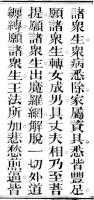 諸衆生衆病悉除家屬資具悉皆豐足
願諸衆生轉女成男具丈夫相乃至菩
提願諸衆生出魔羅網解脫一切外道
纏縛願諸衆生王法所加悲愁煎逼皆